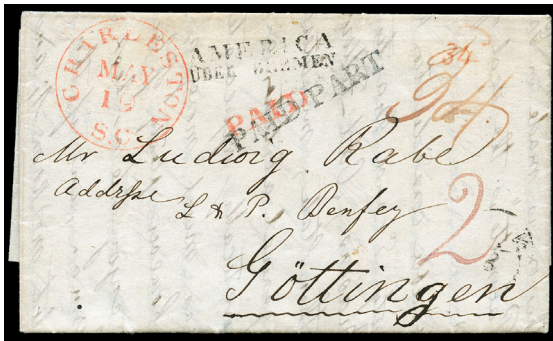 CHARLESTON
MAY
19
S.C.
AMERICA
ÜBER BREMEN
PAID
PAID PART
24
Mr Ludwig Rabe
Addresse L & P. Benfey
2
Göttingen